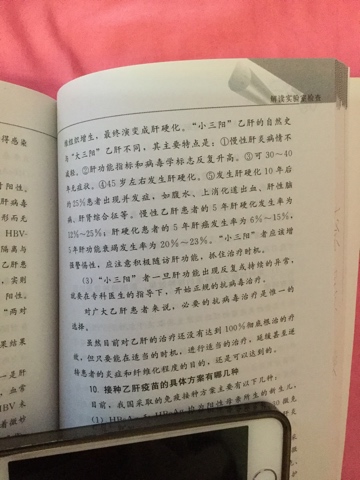 解读实验室检查
维组织增生，最终演变成肝硬化。“小三阳”乙肝的自然史
与“大三阳”乙肝不同，其主要特点是：①慢性肝炎病情不
②肝功能指标和病毒学标志反复升高。③可30～40
年无症状。④45岁左右发生肝硬化。⑤发生肝硬化10年后
约25%患者出现并发症，如腹水、上消化道出血、肝性脑
病、肝肾综合征等。慢性乙肝患者的5年肝硬化发生率为
12%～25%；肝硬化患者的5年肝癌发生率为6%～15%，
5年肝功能衰竭发生率为20%～23%。“小三阳”者应该增
强警惕性，应注意积极随访肝功能，抓住治疗时机。
（3）“小三阳”者一旦肝功能出现反复或持续的异常，
就要在专科医生的指导下，开始正规的抗病毒治疗。
对广大乙肝患者来说，必要的抗病毒治疗是唯一的
选择。
虽然目前对乙肝的治疗还没有达到100%彻底根治的疗
效，但只要能在适当的时机，进行适当的治疗，延缓甚至逆
转患者的炎症和纤维化程度的目的，还是可以达到的。
10. 接种乙肝疫苗的具体方案有哪几种
目前，我国采取的免疫接种方案主要有以下几种：
均为阳性母亲所生的新生儿，
得感染
阳性。
肝病毒
形而无
HBV-
隔离与
乙肝患
，实则
阳性。
“两对
果结果
一是肝
，血常
HBV